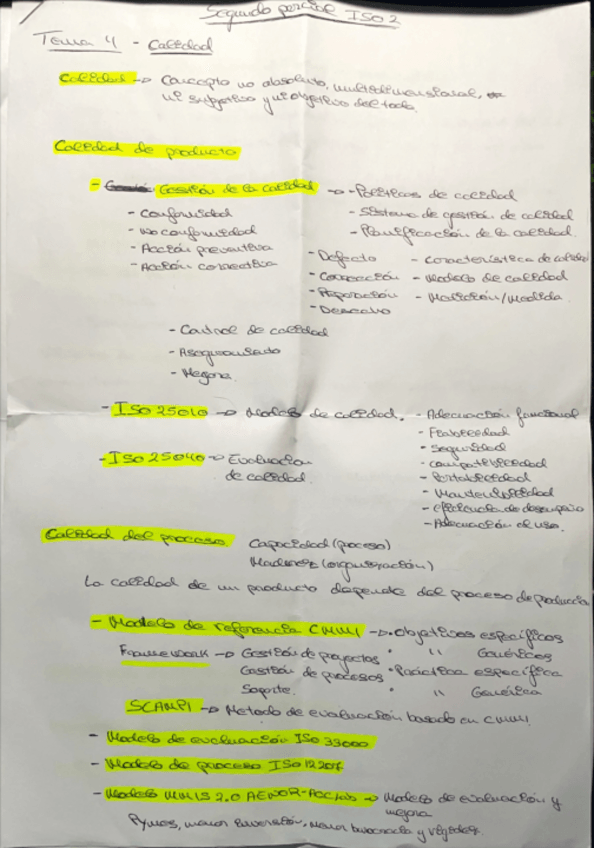 Segundo parcial ISO 2
Tema 4 - Calidad
Calidad -> Concepto no absoluto, multidimensional,
ni subjetivo y ni objetivo del todo.
Calidad de producto
- Gestión de la calidad -> - Políticas de calidad
- Conformidad - Sistema de gestión de calidad
- No conformidad - Planificación de la calidad.
- Acción preventiva - Defecto - Característica de calidad
- Acción correctiva - Corrección - Modelo de calidad
- Reparación - Medición/Medida
- Desecho
- Control de calidad
- Aseguramiento
- Mejora.
- ISO 25010 -> Modelo de calidad. - Adecuación funcional
- Fiabilidad
- Seguridad
- ISO 25040 -> Evaluación - Compatibilidad
de calidad. - Portabilidad
- Mantenibilidad
- Eficiencia de desempeño
- Adecuación al uso.
Calidad del proceso Capacidad (proceso)
Madurez (organización)
La calidad de un producto depende del proceso de producción
- Modelo de referencia CMMI -> • Objetivos específicos
Framework -> Gestión de proyectos • " Genéricos
Gestión de procesos • Práctica específica
Soporte. • " Genérica
SCAMPI -> Método de evaluación basado en CMMI.
- Modelo de evaluación ISO 33000
- Modelo de proceso ISO 12207
- Modelo MMIS 2.0 AENOR -> Modelo de evaluación y
mejora
Pymes, menor inversión, menor burocracia y rigidez.